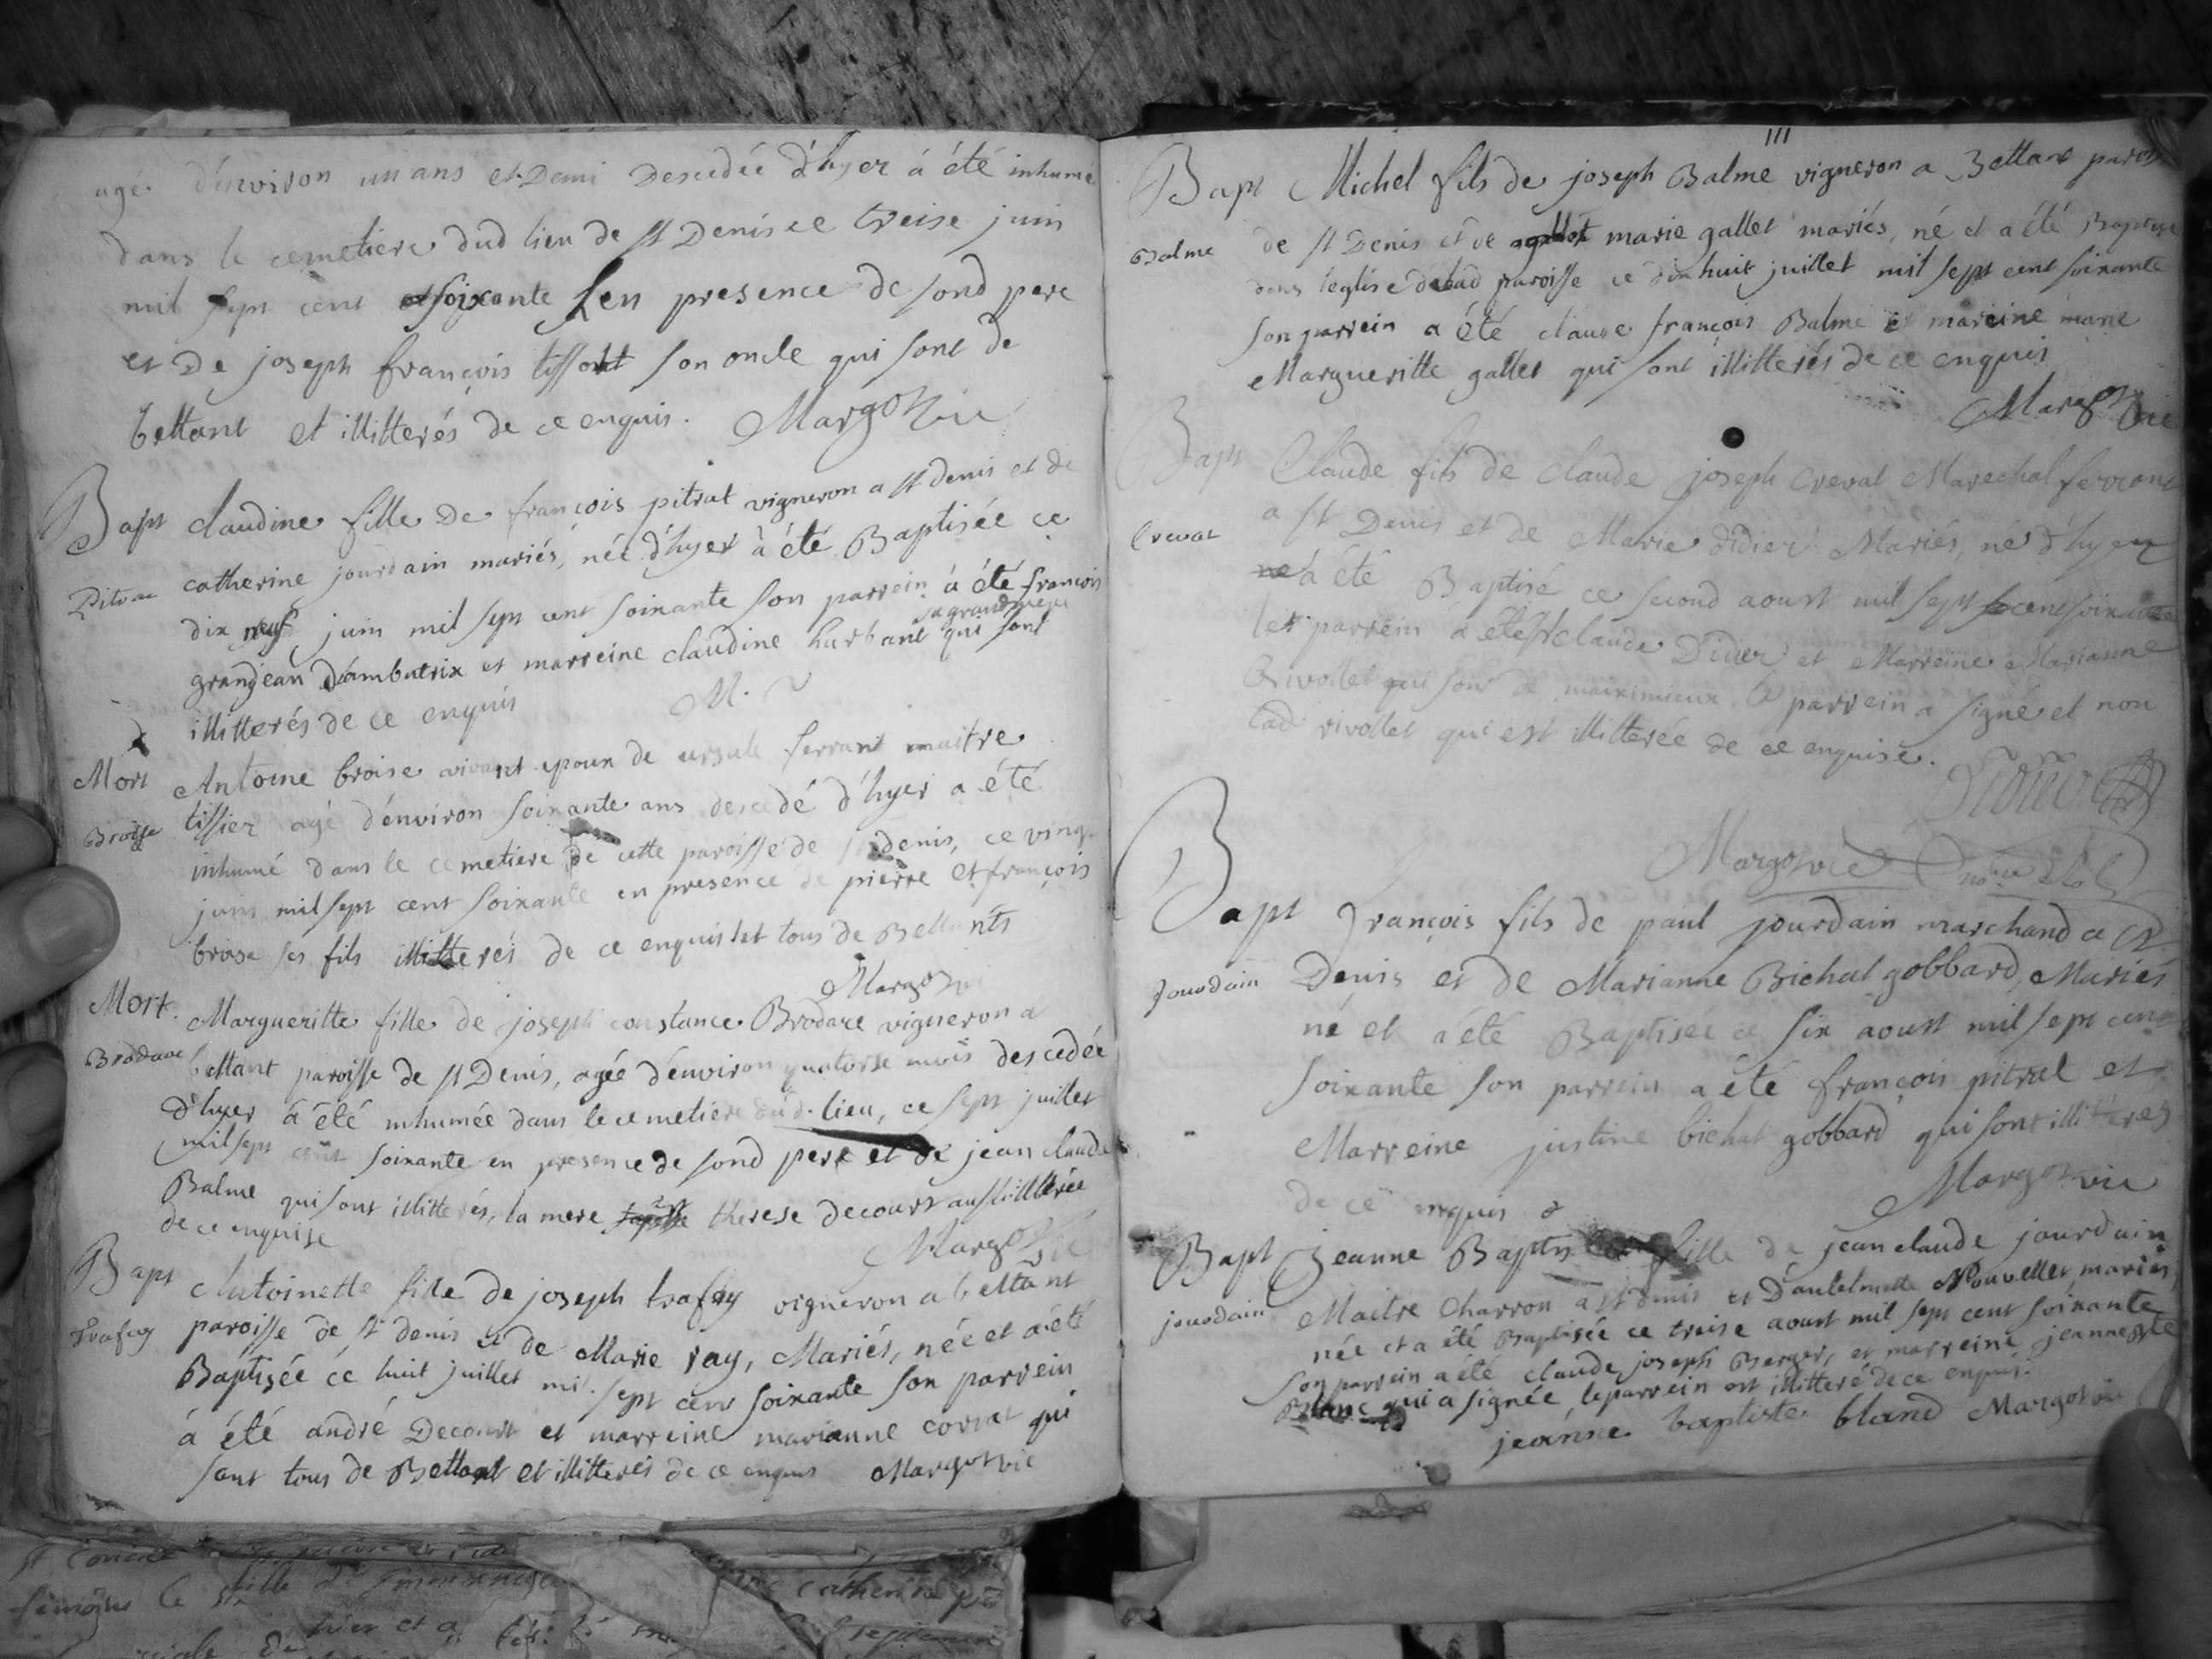 agé d'environ un ans et Demi Descedée d'hyer á été inhumé
dans le cemetiere dud lieu de st Denis ce treise juin
mil sept cent soixante en presence de sond pere
et de joseph françois tissott son oncle qui sont de
bettant et illitterés de ce enquis. Margot vic
Bapt claudine fille de françois pitrat vigneron a st denis et de
catherine jourdain mariés, née d'hyer à été Baptisée ce
Pitrat
dix neuf juin mil sept cent soixante son parrein á été françois
sa grand mere
grandjean d'ambutrix et marreine claudine hurbant qui sont
illitterés de ce enquis M.
Mort Antoine broise vivant epoux de ursule ferrant maitre
Broise tissier agé d'énviron soixante ans descedé d'hyer a été
inhumé dans le cemetiere de cette paroisse de st denis, ce ving
juin mil sept cent soixante en presence de pierre et françois
broise ses fils illitterés de ce enquis et tous de Bettants
Margot vic
Mort. Margueritte fille de joseph constance Brodare vigneron a
Brodare bettant paroisse de st Denis, agée d'énviron quatorse mois descedée
d'hyer á été inhumée dans le cemetiere dud. lieu, ce sept juillet
mil sept cent soixante en presence de sond pere et de jean claude
Balme qui sont illitterés, la mere therese decourt aussi illitterée
de ce enquise Margot vic
Bapt Antoinette fille de joseph trafay vigneron a bettant
trafay paroisse de st denis et de Marie ray, Mariés, née et a été
Baptisée ce huit juillet mil sept cent soixante son parrein
á été andré Decourt et marreine marianne corrat qui
sont tous de Bettant et illitterés de ce enquis Margot vic
111
Bapt Michel fils de joseph Balme vigneron a Bettant parois
Balme de st Denis et de marie gallet mariés, né et a été Baptisé
dans l'eglise delad paroisse ce dix huit juillet mil sept cent soixante
son parrein a été claude françois Balme et mareine marie
Margueritte gallet qui sont illitterés de ce enquis
Margot vic
Bapt Claude fils de claude joseph Crevat Marechal ferrant
Crevat a st Denis et de Marie didier Mariés, né d'hyer
á été Baptisé ce second aoust mil sept cent soixante
le parrein a été claude Didier et Marreine Marianne
Rivollet qui sont de meximieux le parrein a signé et non
lad. rivollet qui est illitterée de ce enquise.
Margot vic
Bapt françois fils de paul jourdain marchand a st
Jourdain Denis et de Marianne Bichat gobbard, Mariés
né et a été Baptisée ce six aoust mil sept cent
soixante son parrein a été françois pitrat et
Marreine justine bichat gobbard qui sont illitterés
de ce enquis Margot vic
Bapt Jeanne Baptiste fille de jean claude jourdain
jourdain Maitre Charron a st denis et D'antelmette Nouvellet mariés,
née et a été Baptisée ce treise aoust mil sept cent soixante
son parrein a été claude joseph Berger, et marreine jeanne Bte
Blanc qui a signée, le parrein est illitteré de ce enquis.
jeanne baptiste bland Margot vic